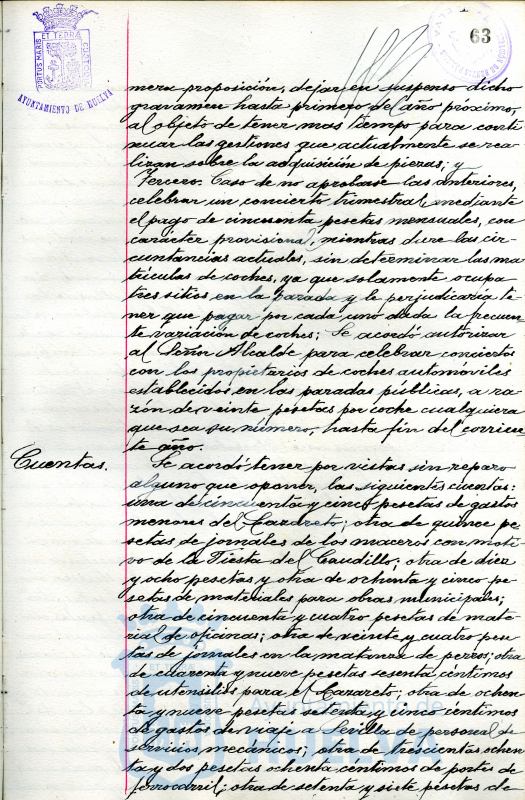 PORTUS MARIS ET TERRÆ CUSTODIA
AYUNTAMIENTO DE HUELVA
63
mera proposición, dejar en suspenso dicho
gravamen hasta primero del año próximo,
al objeto de tener mas tiempo para conti
nuar las gestiones que actualmente se rea-
lizan sobre la adquisición de piezas; y
Tercero. Caso de no aprobarse las anteriores,
celebrar un concierto trimestral, mediante
el pago de cincuenta pesetas mensuales, con
carácter provisional, mientras dure las cir-
cuntancias actuales, sin determinar las ma
trículas de coches, ya que solamente ocupa
tres sitios en la parada y le perjudicaría te
ner que pagar por cada uno dada la frecuen
te variación de coches; Se acordó autorizar
al Señor Alcalde para celebrar conciertos
con los propietarios de coches automóviles
establecidos en las paradas públicas, a ra
zón de veinte pesetas por coche cualquiera
que sea su número, hasta fin del corrien
te año.
Cuentas.
Se acordó tener por vistas sin reparo
alguno que oponer, las siguientes cuentas:
una de cincuenta y cinco pesetas de gastos
menores del Lazareto; otra de quince pe
setas de jornales de los maceros con moti
vo de la Fiesta del Caudillo; otra de diez
y ocho pesetas y otra de ochenta y cinco pe
setas de materiales para obras municipales;
otra de cincuenta y cuatro pesetas de mate-
rial de oficinas; otra de veinte y cuatro pese
tas de jornales en la matanza de perros; otra
de cuarenta y nueve pesetas sesenta céntimos
de utensilios para el Lazareto; otra de ochen
ta y nueve pesetas setenta y cinco céntimos
de gastos de viaje a Sevilla de personal de
servicios mecánicos; otra de trescientas ochen
ta y dos pesetas ochenta céntimos de portes de
ferrocarril; otra de setenta y siete pesetas de
Ayuntamiento de
HUELVA